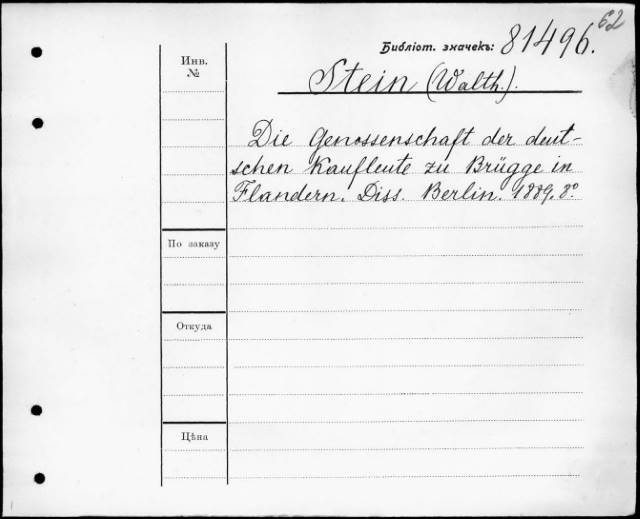 62
Библіот. значекъ: 81496.
Инв.
№
Stein (Walth.).
Die Genossenschaft der deut-
schen Kaufleute zu Brügge in
Flandern. Diss. Berlin. 1889. 8º
По заказу
Откуда
Цѣна